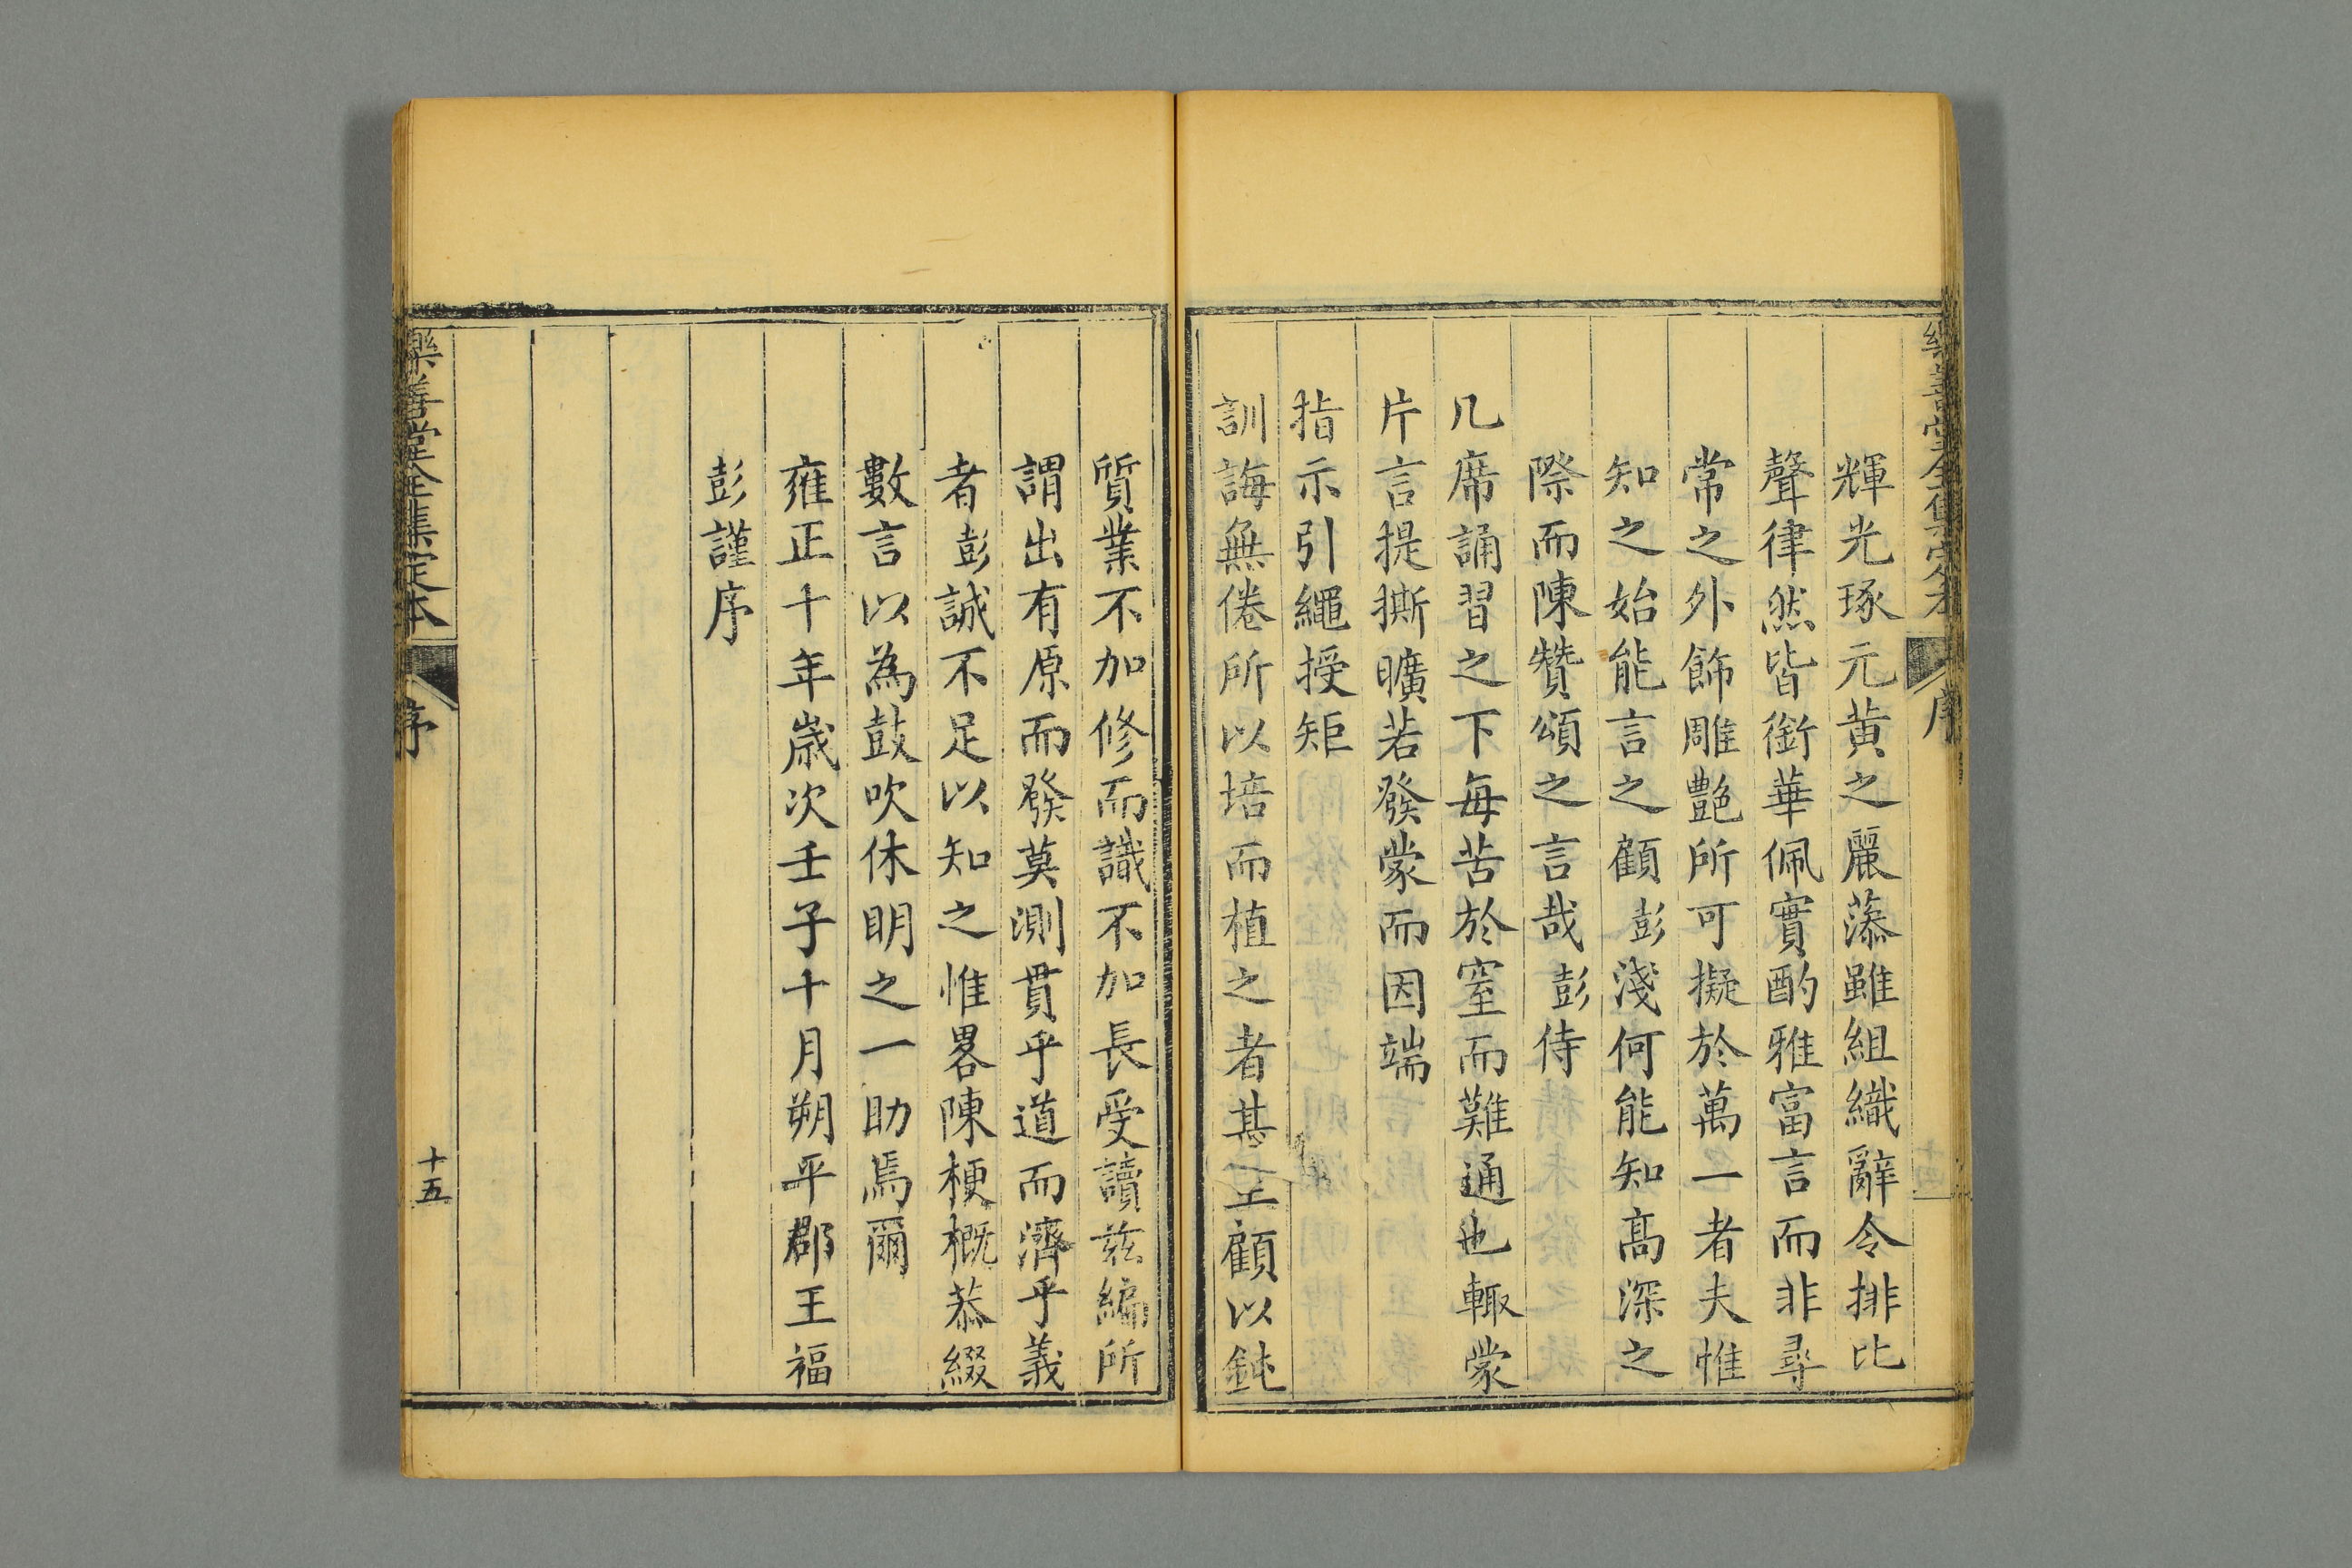 樂善堂全集定本
序
輝光琢元黃之麗藻雖組織辭令排比
聲律然皆銜華佩實酌雅富言而非尋
常之外飾雕艷所可擬於萬一者夫惟
知之始能言之顧彭淺何能知高深之
際而陳贊頌之言哉彭侍
几席誦習之下每苦於窒而難通也輙蒙
片言提撕曠若發蒙而因端
指示引繩授矩
訓誨無倦所以培而植之者甚
顧以鈍
質業不加修而識不加長受讀兹編所
謂出有原而發莫測貫乎道而濟乎義
者彭誠不足以知之惟畧陳梗概恭綴
數言以為鼓吹休明之一助焉爾
雍正十年歲次壬子十月朔平郡王福
彭謹序
樂善堂全集定本
序
十五